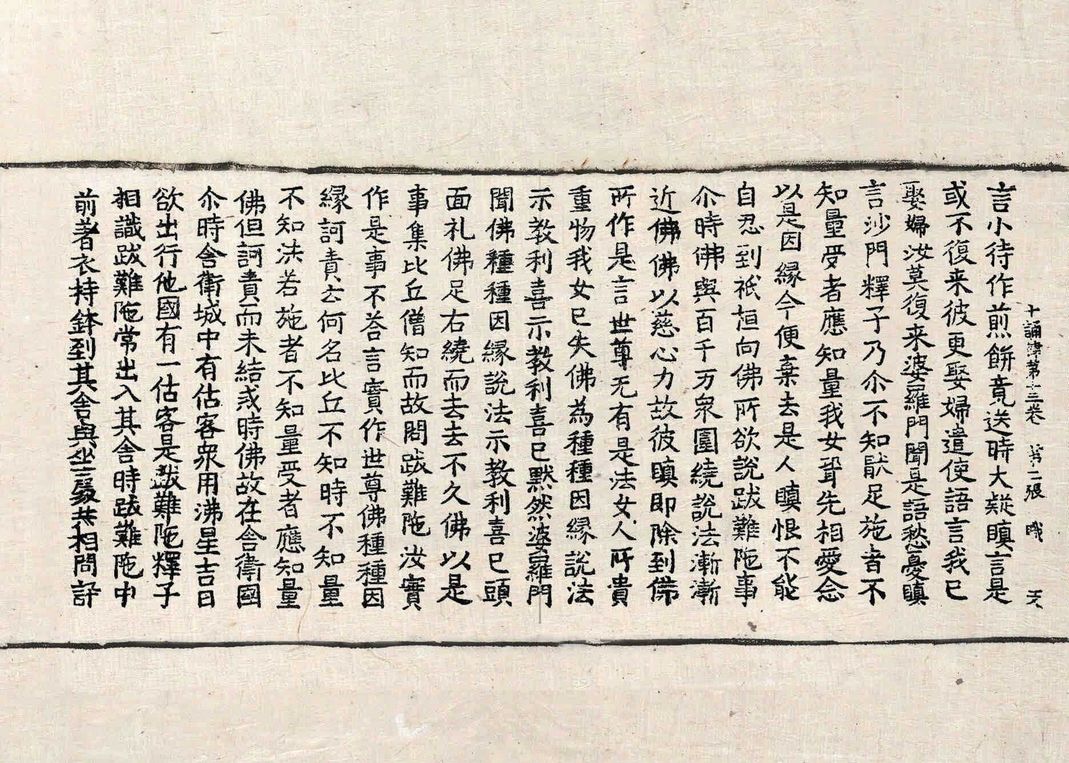 十誦律第十三卷 第二張 職 天
言小待作煎餅竟送時大疑瞋言是
或不復来彼更娶婦遣使語言我已
娶婦汝莫復来婆羅門聞是語愁憂瞋
言沙門釋子乃尒不知猒足施者不
知量受者應知量我女壻先相愛念
以是因緣今便棄去是人瞋恨不能
自忍到祇洹向佛所欲說跋難陁事
尒時佛與百千万衆圍繞說法漸漸
近佛佛以慈心力故彼瞋即除到佛
所作是言世尊无有是法女人所貴
重物我女已失佛為種種因緣說法
示教利喜示教利喜已默然婆羅門
聞佛種種因緣說法示教利喜已頭
面礼佛足右繞而去去不久佛以是
事集比丘僧知而故問跋難陁汝實
作是事不荅言實作世尊佛種種因
緣訶責云何名比丘不知時不知量
不知法若施者不知量受者應知量
佛但訶責而未結戒時佛故在舍衛國
尒時舍衛城中有估客衆用沸星吉日
欲出行他國有一估客是跋難陁釋子
相識跋難陁常出入其舍時跋難陁中
前著衣持鉢到其舍與坐處共相問訊